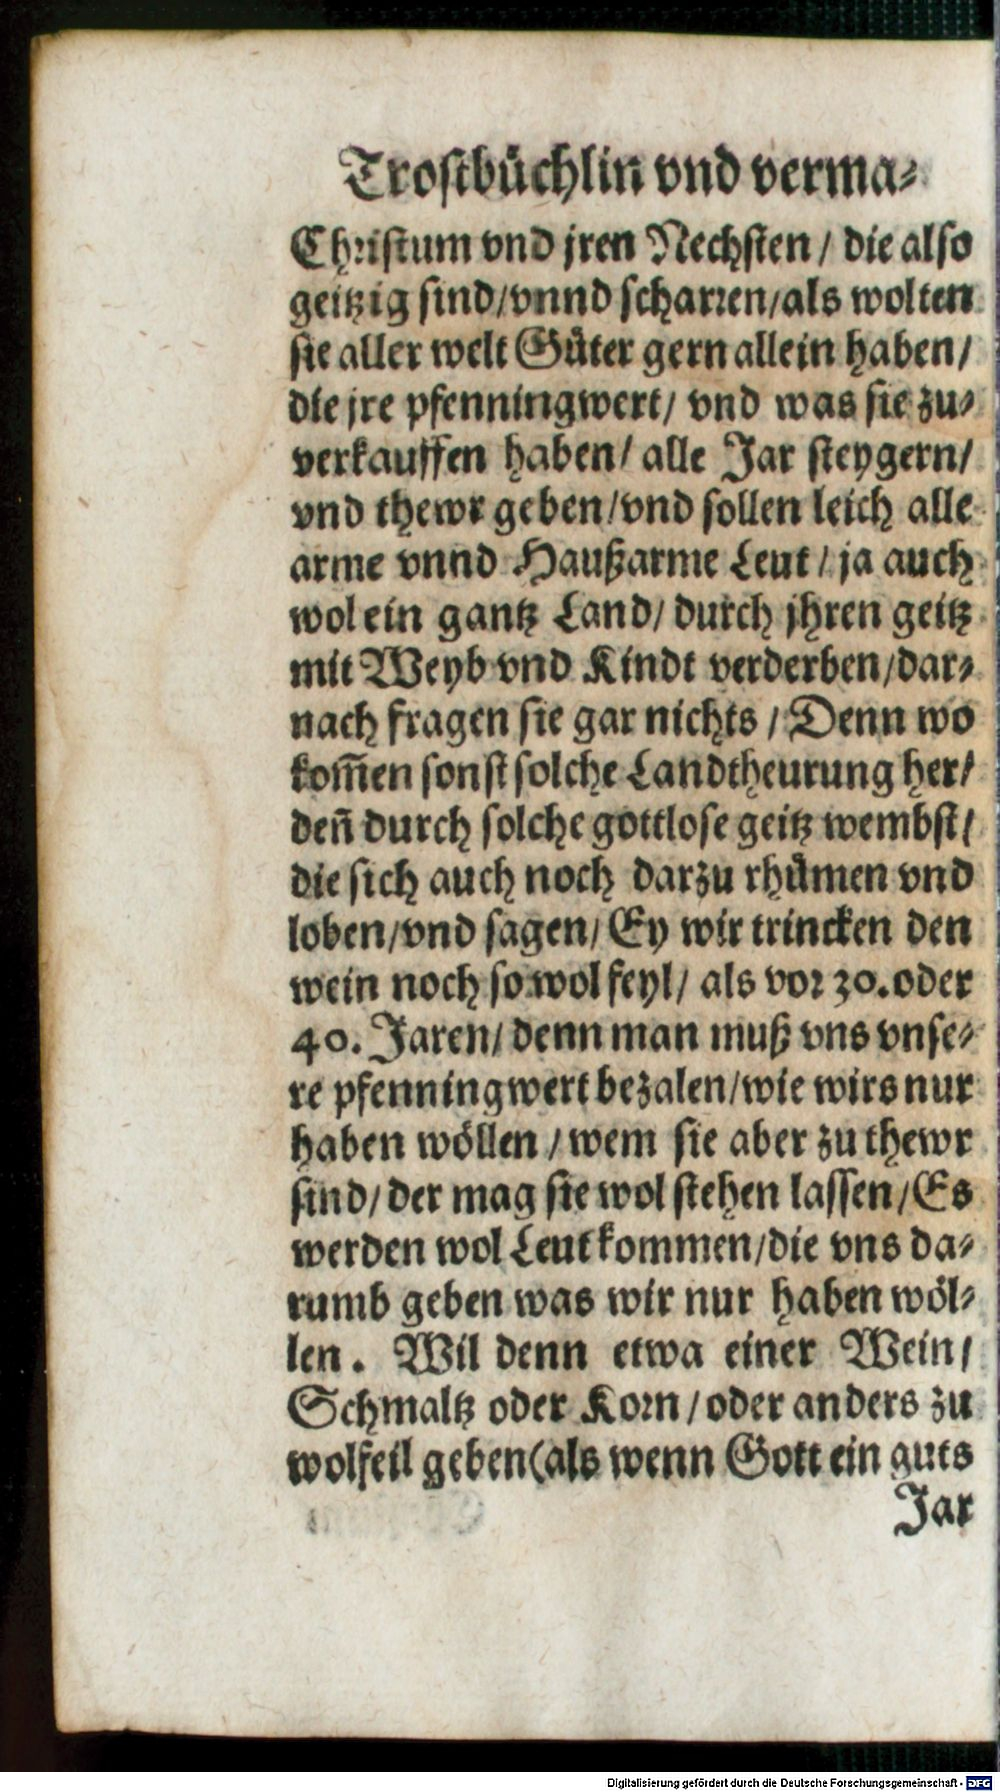 Trostbüchlin vnd verma⸗
Christum vnd jren Nechsten / die also
geitzig sind/vnnd scharren/als wolten
sie aller welt Güter gern allein haben/
die jre pfenningwert/ vnd was sie zu⸗
verkauffen haben/ alle Jar steygern/
vnd thewr geben/vnd sollen leich alle
arme vnnd Haußarme Leut / ja auch
wol ein gantz Land/ durch jhren geitz
mit Weyb vnd Kindt verderben/dar⸗
nach fragen sie gar nichts / Denn wo
kom̃en sonst solche Landtheurung her/
deñ durch solche gottlose geitz wembst/
die sich auch noch darzu rhümen vnd
loben/vnd sagen/ Ey wir trincken den
wein noch so wolfeyl/ als vor 30. oder
40. Jaren/ denn man muß vns vnse⸗
re pfenningwert bezalen/wie wirs nur
haben wöllen / wem sie aber zu thewr
sind/ der mag sie wol stehen lassen/Es
werden wol Leut kommen/die vns da⸗
rumb geben was wir nur haben wöl⸗
len. Wil denn etwa einer Wein/
Schmaltz oder Korn / oder anders zu
wolfeil geben(als wenn Gott ein guts
Jar
Digitalisierung gefördert durch die Deutsche Forschungsgemeinschaft - DFG